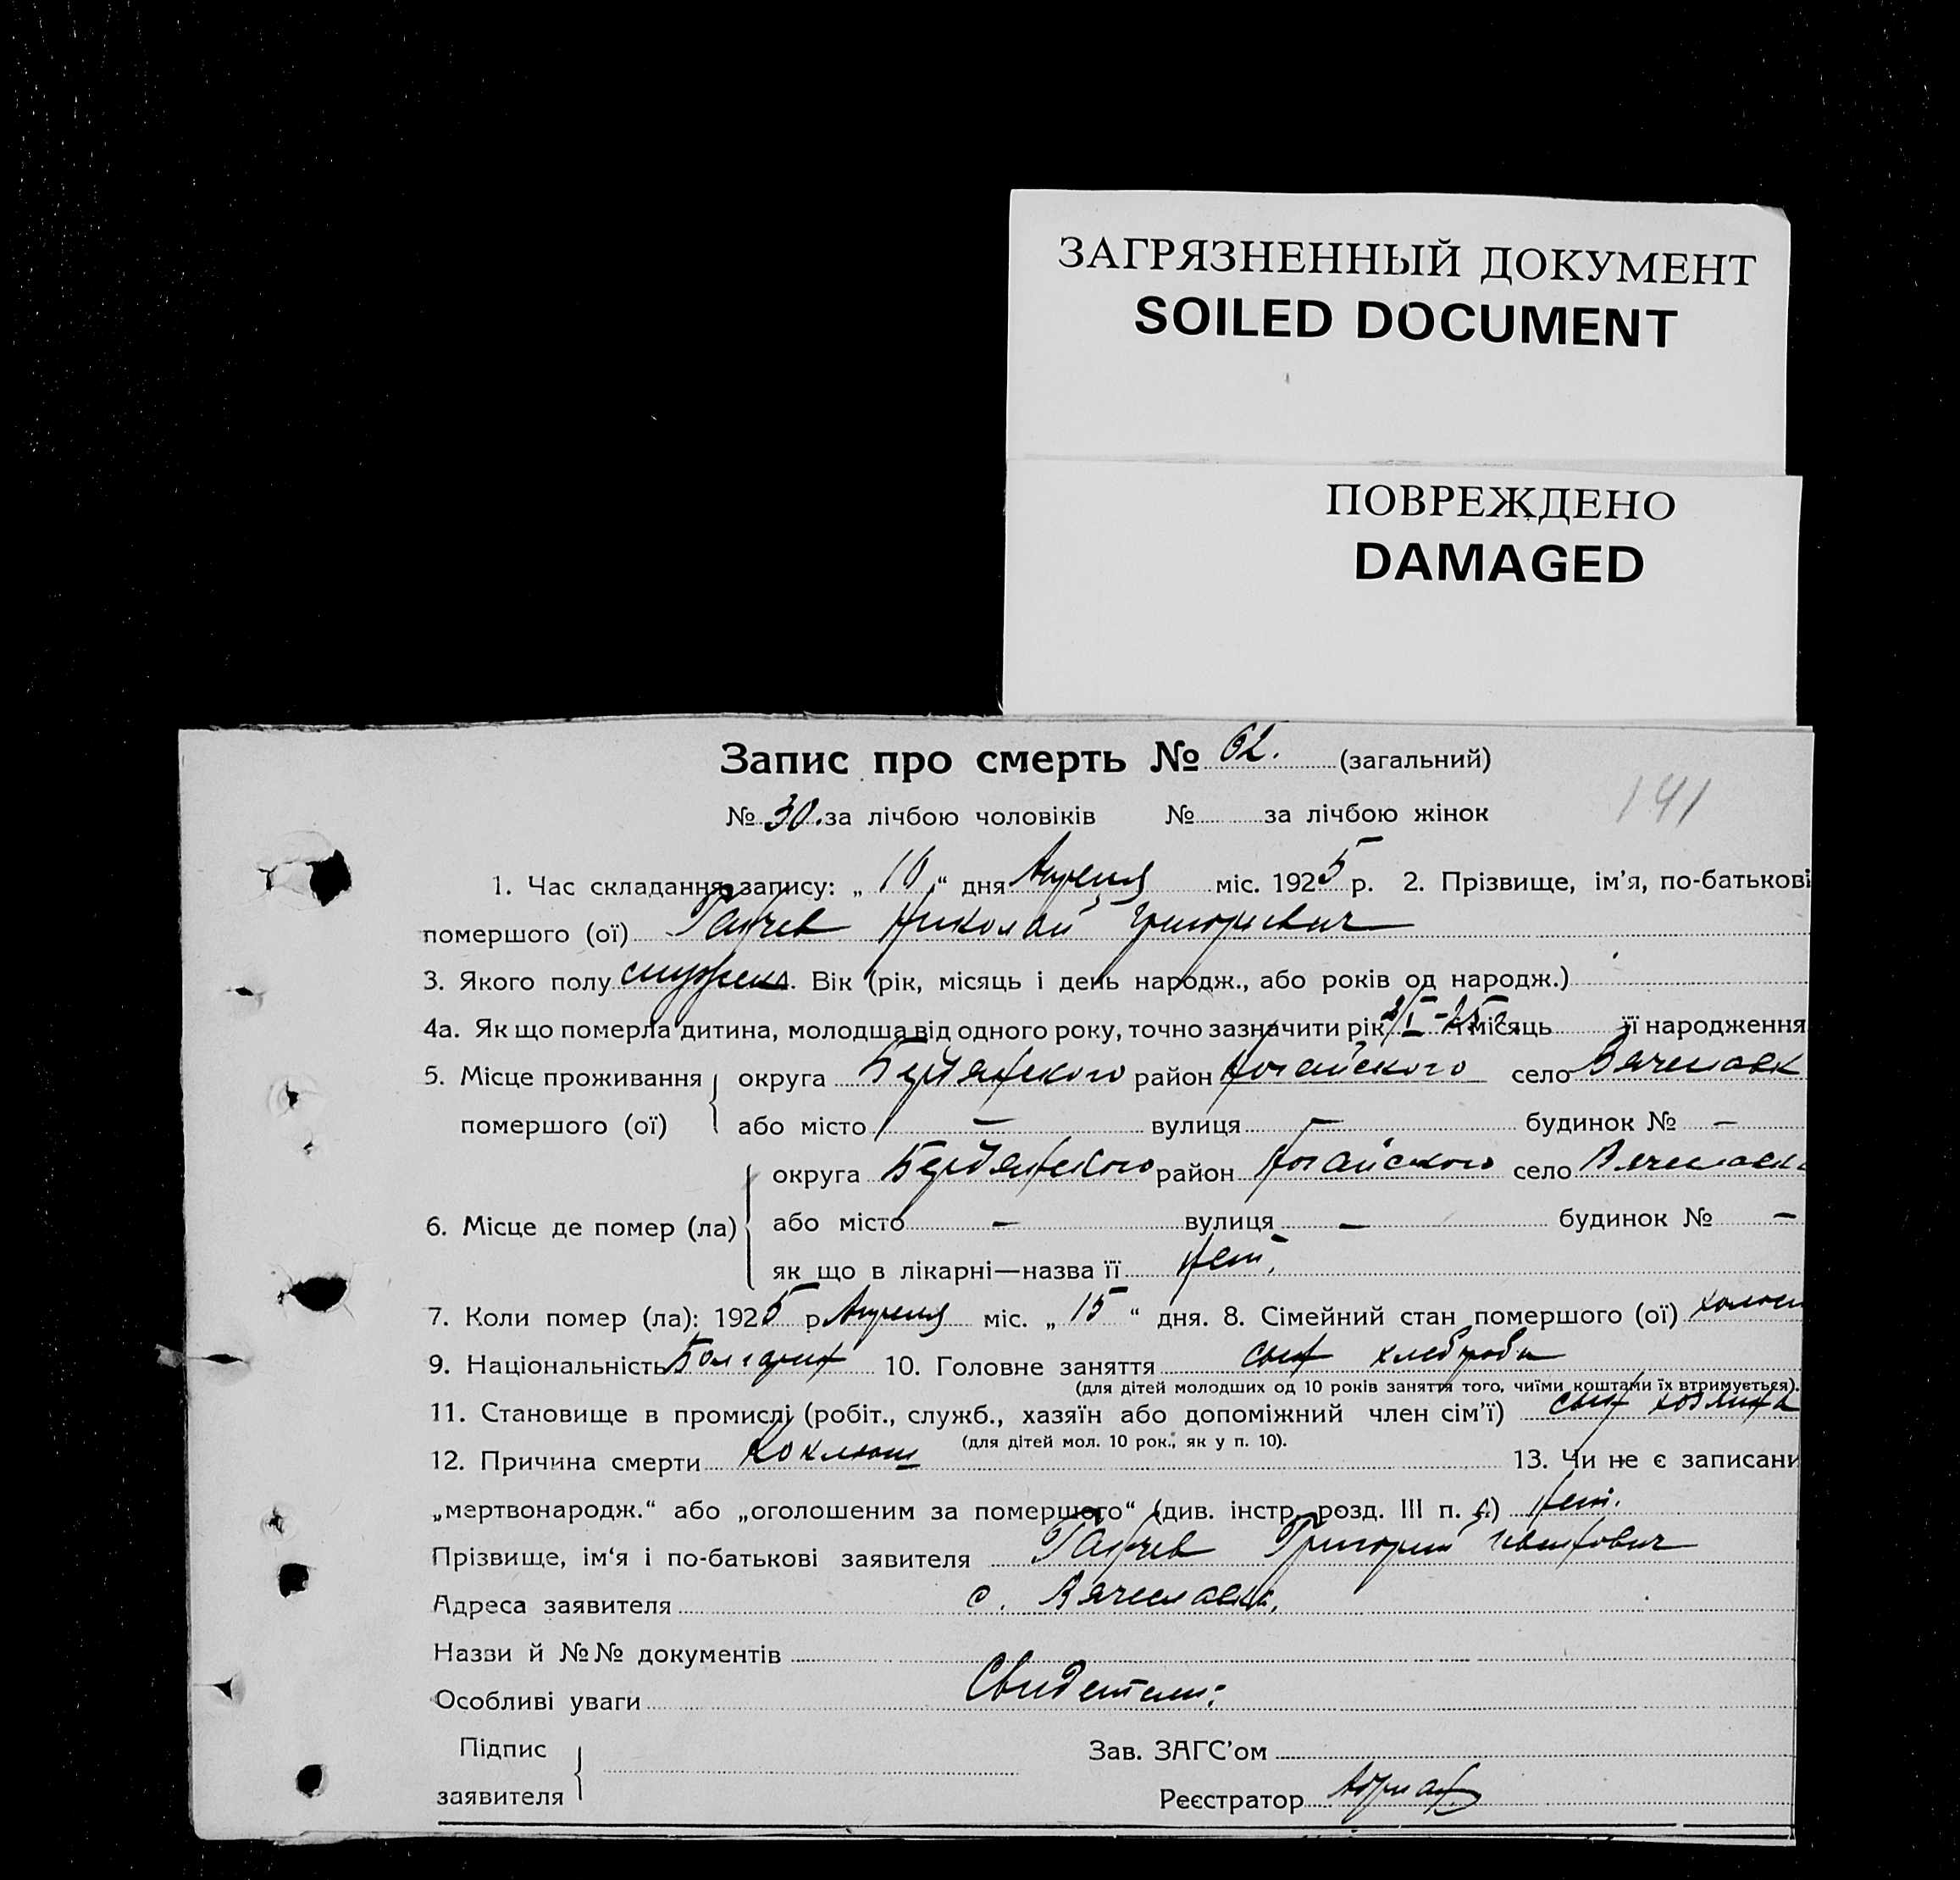 ЗАГРЯЗНЕННЫЙ ДОКУМЕНТ
SOILED DOCUMENT
ПОВРЕЖДЕНО
DAMAGED
Запис про смерть № 62. (загальний)
141
№ 30. за лічбою чоловіків № за лічбою жінок
1. Час складання запису: „ 16 “ дня Апреля міс. 1925 р. 2. Прізвище, ім’я, по-батькові
помершого (ої) Николай Григориевич
3. Якого полу Вік (рік, місяць і день народж., або років од народж.)
4а. Як що померла дитина, молодша від одного року, точно зазначити рік місяць її народження
5. Місце проживання округа Бердянского район Ногайского село Вячеславк
помершого (ої) або місто — вулиця — будинок № —
округа Бердянского район Ногайского село Вячеславка
6. Місце де помер (ла) або місто — вулиця — будинок № —
як що в лікарні—назва її Нет.
7. Коли помер (ла): 1925 р Апреля міс. „ 15 “ дня. 8. Сімейний стан помершого (ої) холост
9. Національність Болгарин 10. Головне заняття сын хлебороба
(для дітей молодших од 10 років заняття того, чиїми коштами їх втримується).
11. Становище в промислі (робіт., служб., хазяїн або допоміжний член сім’ї) сын хозяина
(для дітей мол. 10 рок., як у п. 10).
12. Причина смерти Коклюш 13. Чи не є записани
„мертвонародж.“ або „оголошеним за помершого“ (див. інстр. розд. III п. г.) Нет.
Прізвище, ім‘я і по-батькові заявителя Григорий Иванович
Адреса заявителя с. Вячеславка,
Назви й №№ документів
Особливі уваги Свидетели:
Підпис Зав. ЗАГС’ом
заявителя Реєстратор